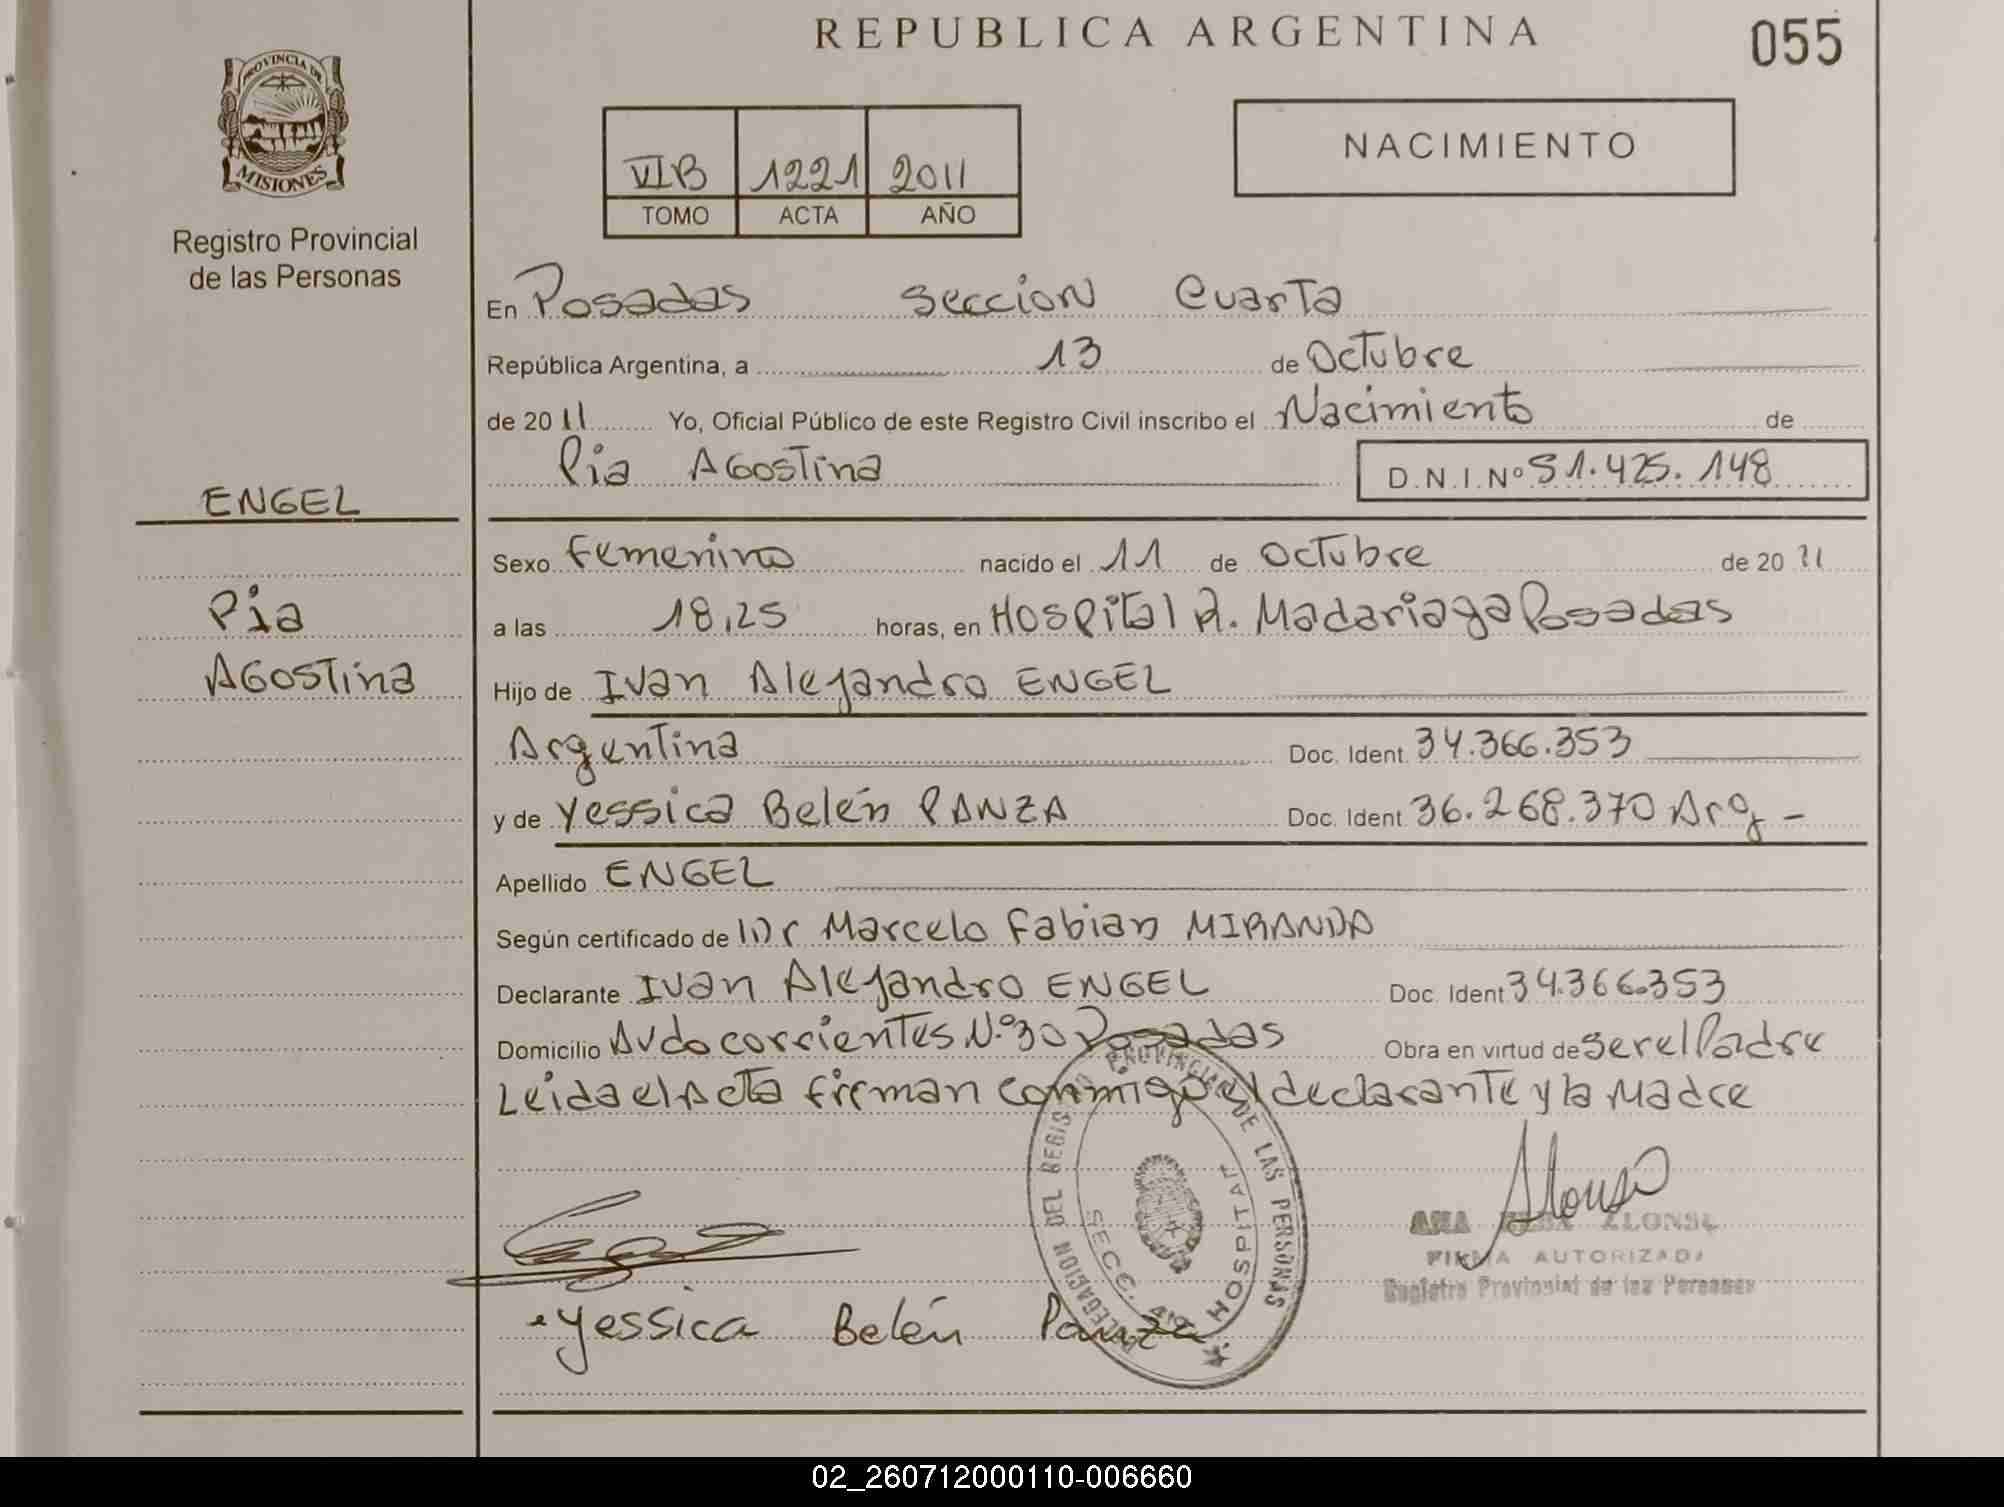 REPUBLICA ARGENTINA
055
PROVINCIA DE
MISIONES
Registro Provincial
de las Personas
VIB 1221 2011
TOMO ACTA AÑO
NACIMIENTO
En Posadas seccion Cuarta
República Argentina, a 13 de Octubre
de 2011 Yo, Oficial Público de este Registro Civil inscribo el Nacimiento de
Pia Agostina D.N.I.Nº 51.425.148
ENGEL
Sexo Femenino nacido el 11 de Octubre de 2011
Pia
a las 18,25 horas, en Hospital R. Madariaga Posadas
Agostina
Hijo de Ivan Alejandro ENGEL
Argentina Doc. Ident. 34.366.353
y de Yessica Belén PANZA Doc. Ident. 36.268.370 Arg -
Apellido ENGEL
Según certificado de Dr Marcelo Fabian MIRANDA
Declarante Ivan Alejandro ENGEL Doc Ident 34.366.353
Domicilio Avda corrientes N.º30 Posadas Obra en virtud de ser el Padre
Leida el Acta firman conmigo el declarante y la Madre
DELEGACION DEL REGISTRO PROVINCIAL DE LAS PERSONAS
SECC. 4ta HOSPITAL
Alonso
ANA ALONSO
FIRMA AUTORIZADA
Registro Provincial de las Personas
Yessica Belén Panza
02_260712000110-006660